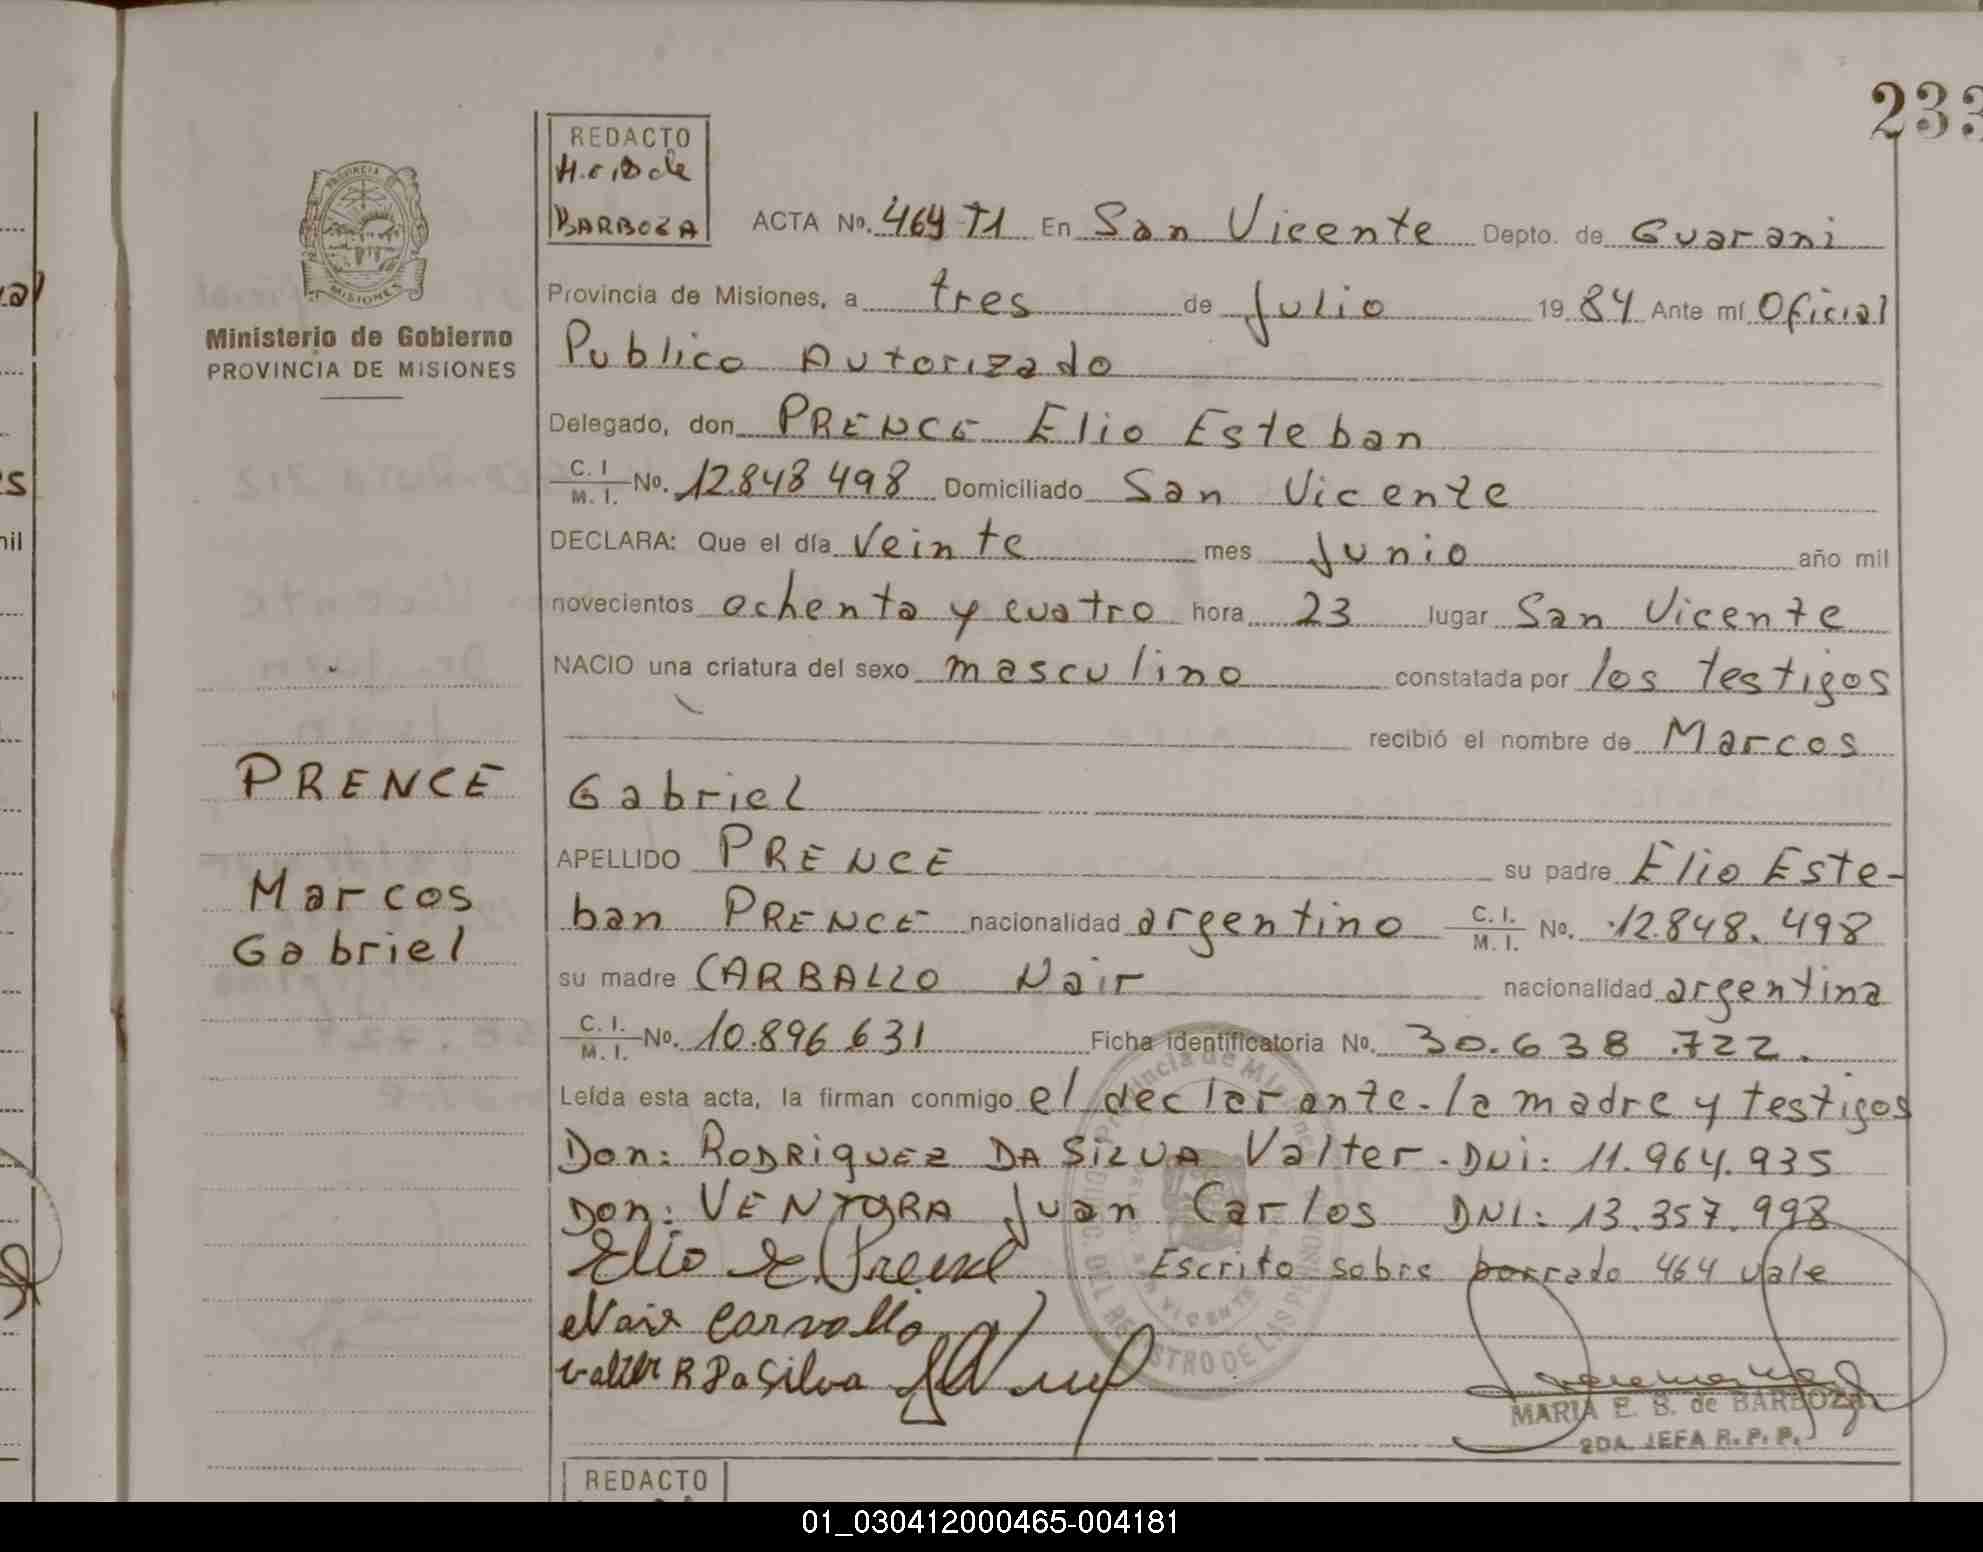 233
REDACTO
BARBOZA
ACTA No. 464 T1 En San Vicente Depto. de Guarani
Provincia de Misiones, a tres de Julio 1984 Ante mí Oficial
Publico Autorizado
Delegado, don PRENCE Elio Esteban
C. I. M. I. No. 12.848 498 Domiciliado San Vicente
DECLARA: Que el día Veinte mes Junio año mil
novecientos ochenta y cuatro hora 23 lugar San Vicente
NACIO una criatura del sexo masculino constatada por los testigos
recibió el nombre de Marcos
Gabriel
APELLIDO PRENCE su padre Elio Este-
ban PRENCE nacionalidad argentino C. I. M. I. No. 12.848.498
su madre CARBALLO Nair nacionalidad argentina
C. I. M. I. No. 10.896 631 Ficha identificatoria No. 30.638.722.
Leída esta acta, la firman conmigo el declarante. la madre y testigos
Don: RODRIGUEZ DA SILVA Valter. DNi: 11.964.935
Don: VENTURA Juan Carlos DNI: 13.357.998
Elio E Prence Escrito sobre borrado 464 vale
Nair Carvallo
Valter R Da Silva
MARIA E. B. de BARBOZA
2DA. JEFA R. P. P.
Provincia de Misiones
DEL REGISTRO DE LAS PERSONAS
SAN VICENTE
PROVINCIA
MISIONES
Ministerio de Gobierno
PROVINCIA DE MISIONES
PRENCE
Marcos
Gabriel
REDACTO
01_030412000465-004181